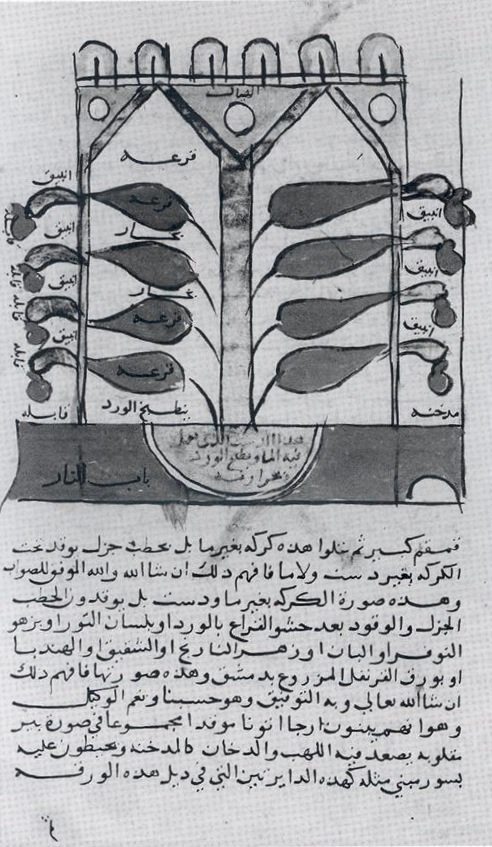 الشباك
انبيق
قرعه
انبيق
قرعه
قابله
انبيق
بخار
انبيق
انبيق
قابله
بخار
انبيق
قرعه
انبيق
قابله
انبيق
قرعه
قابله
يطبخ الورد
مدخنه
باب النار
هذا
فيه الما
قمقم كبير ثم يتلوا هذه كركه بغير ما بل بحطب جزل يوقد تحت
الكركه بغير دست ولا ما فافهم ذلك ان شا الله والله الموفق للصواب
وهذه صورة الكركه بغير ما ودست بل يوقدون الحطب
الجزل والوقود بعد حشو القراع بالورد او بلسان الثور او بزهر
النوفر او البان او زهر النارنج او الشقيق او الهندبا
او بورق القرنفل المزروع بدمشق وهذه صورتها فافهم ذلك
ان شا الله تعالى وبه التوفيق وهو حسبنا ونعم الوكيل
وهو انهم يبنون ارجا اتونا موقدا مجموعا في صورة بير
مقلوبه يصعد فيه اللهب والدخان كالمدخنه ويحيطون عليه
بسور مبني مثله كهذه الدايرتين التي في ذيل هذه الورقه